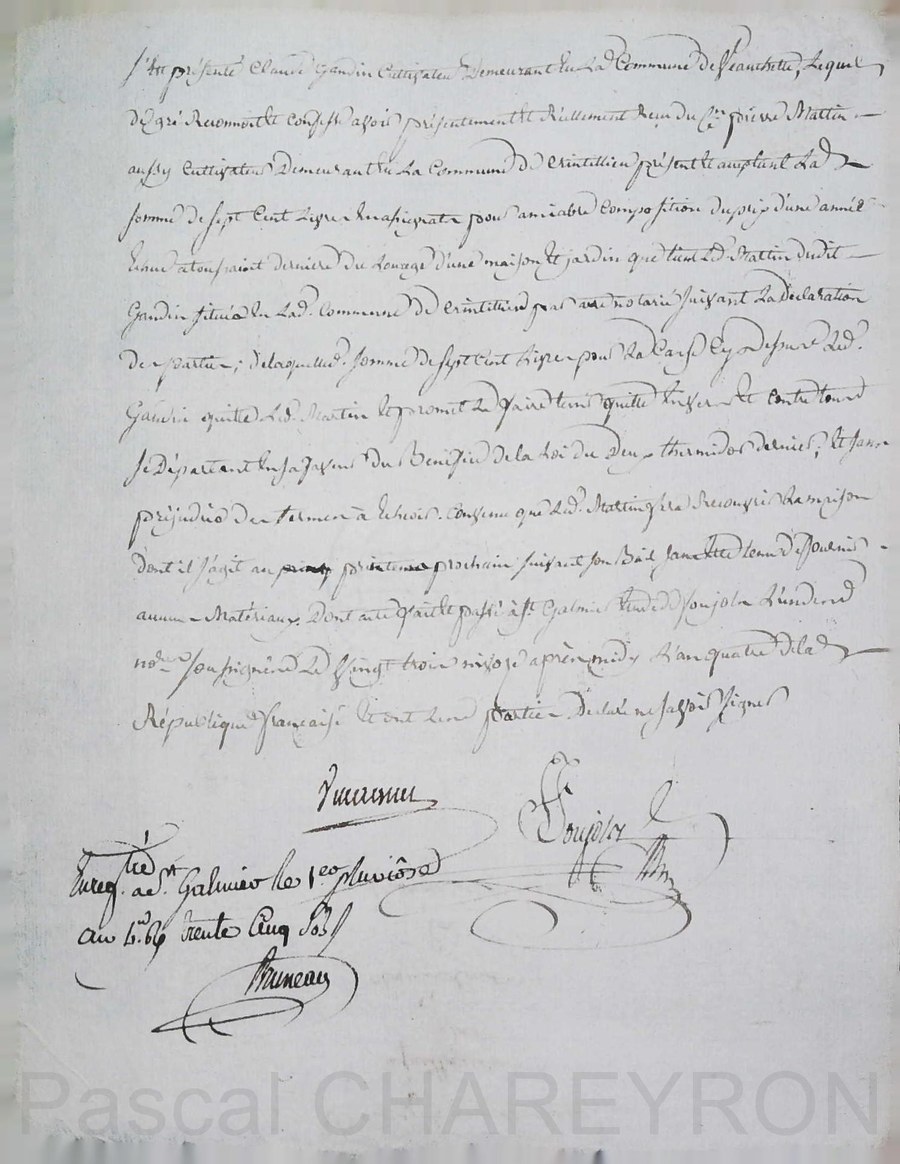 S'est présenté Claude Gandin Cultivateur Demeurant En La Commune de Veauchette, Lequel
de gré Reconnoit et confesse avoir présentement et Réellement Reçu du Cen pierre Mattin
aussy Cultivateur Demeurant En La Commune De Crintillieu présent et acceptant La
somme de sept Cent Livres En assignats pour amiable composition du prix d'une année
Echue a toussaint derniere du Louage d'une maison et jardin que tient Led. Mattin dudit
Gandin située En Lad. Commune de Crintillieu par acte notarié suivant La declaration
des parties; de laquelle somme de sept Cent Livres pour La Cause Cy dessus Led.
Gandin quitte Led. Martin et promet Le faire tenir quitte Envers et contre tous
se Départant En sa faveur du Benefice de la Loi du Deux thermidor dernier; Et sans
préjudice des termes à Echeoir. Convenu que Led. Mattin fera Recouvrir La maison
dont il s'agit au printems prochain suivant son Bail sans Etre tenu de fournir
aucuns Matériaux. Dont acte fait et passé à St. Galmier Etude de Soujolr L'un des
nores soussignés Le Vingt trois nivose après midy L'an quatre de la
République française Et ont Les parties Déclaré ne savoir signer
Soujolr
Enregtré a St. Galmier le 1er pluviôse
an 4. trente Cinq Sols
Bruneau
Pascal CHAREYRON